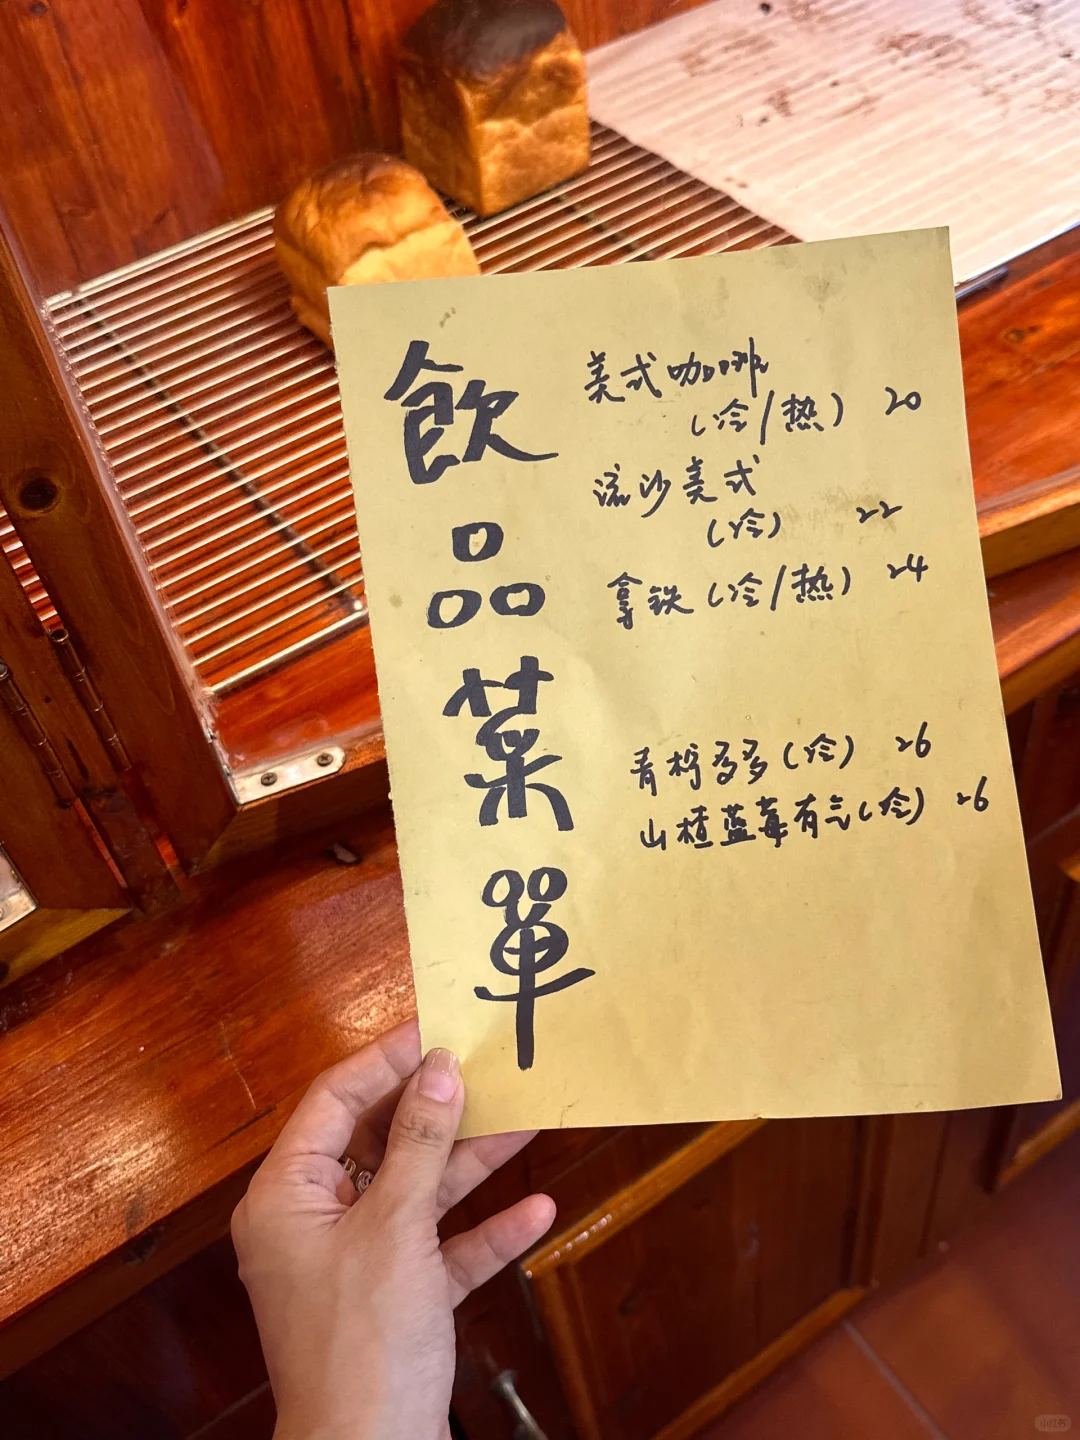 飲品菜單
美式咖啡
(冷/热) 20
流沙美式
(冷) 22
拿铁(冷/热) 24
青柠多多(冷) 26
山楂蓝莓有气(冷) 26
小红书